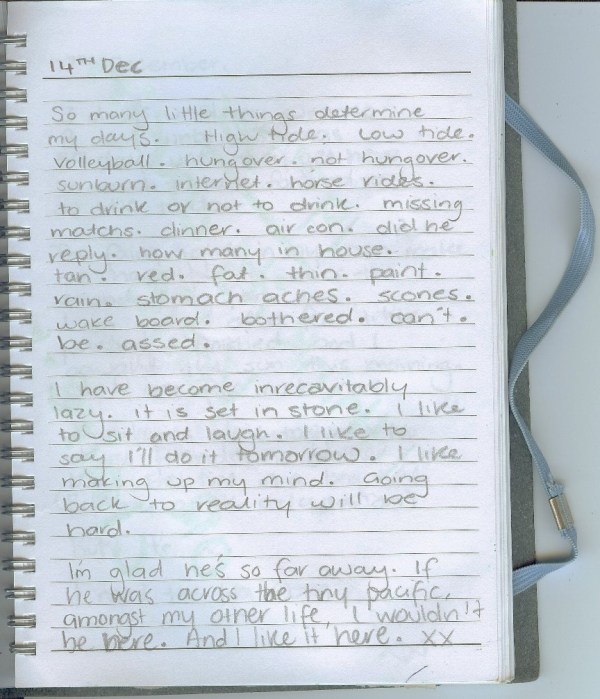 14TH Dec
So many little things determine
my days. High tide. Low tide.
volleyball. hungover. not hungover.
sunburn. internet. horse rides.
to drink or not to drink. missing
matchs. dinner. air con. did he
reply. how many in house.
tan. red. fat. thin. paint.
rain. stomach aches. scones.
wake board. bothered. can't.
be. assed.
I have become inrecavitably
lazy. it is set in stone. I like
to sit and laugh. I like to
say I'll do it tomorrow. I like
making up my mind. Going
back to reality will be
hard.
I'm glad he's so far away. If
he was across the tiny pacific,
amongst my other life, I wouldn't
be here. And I like it here. xx